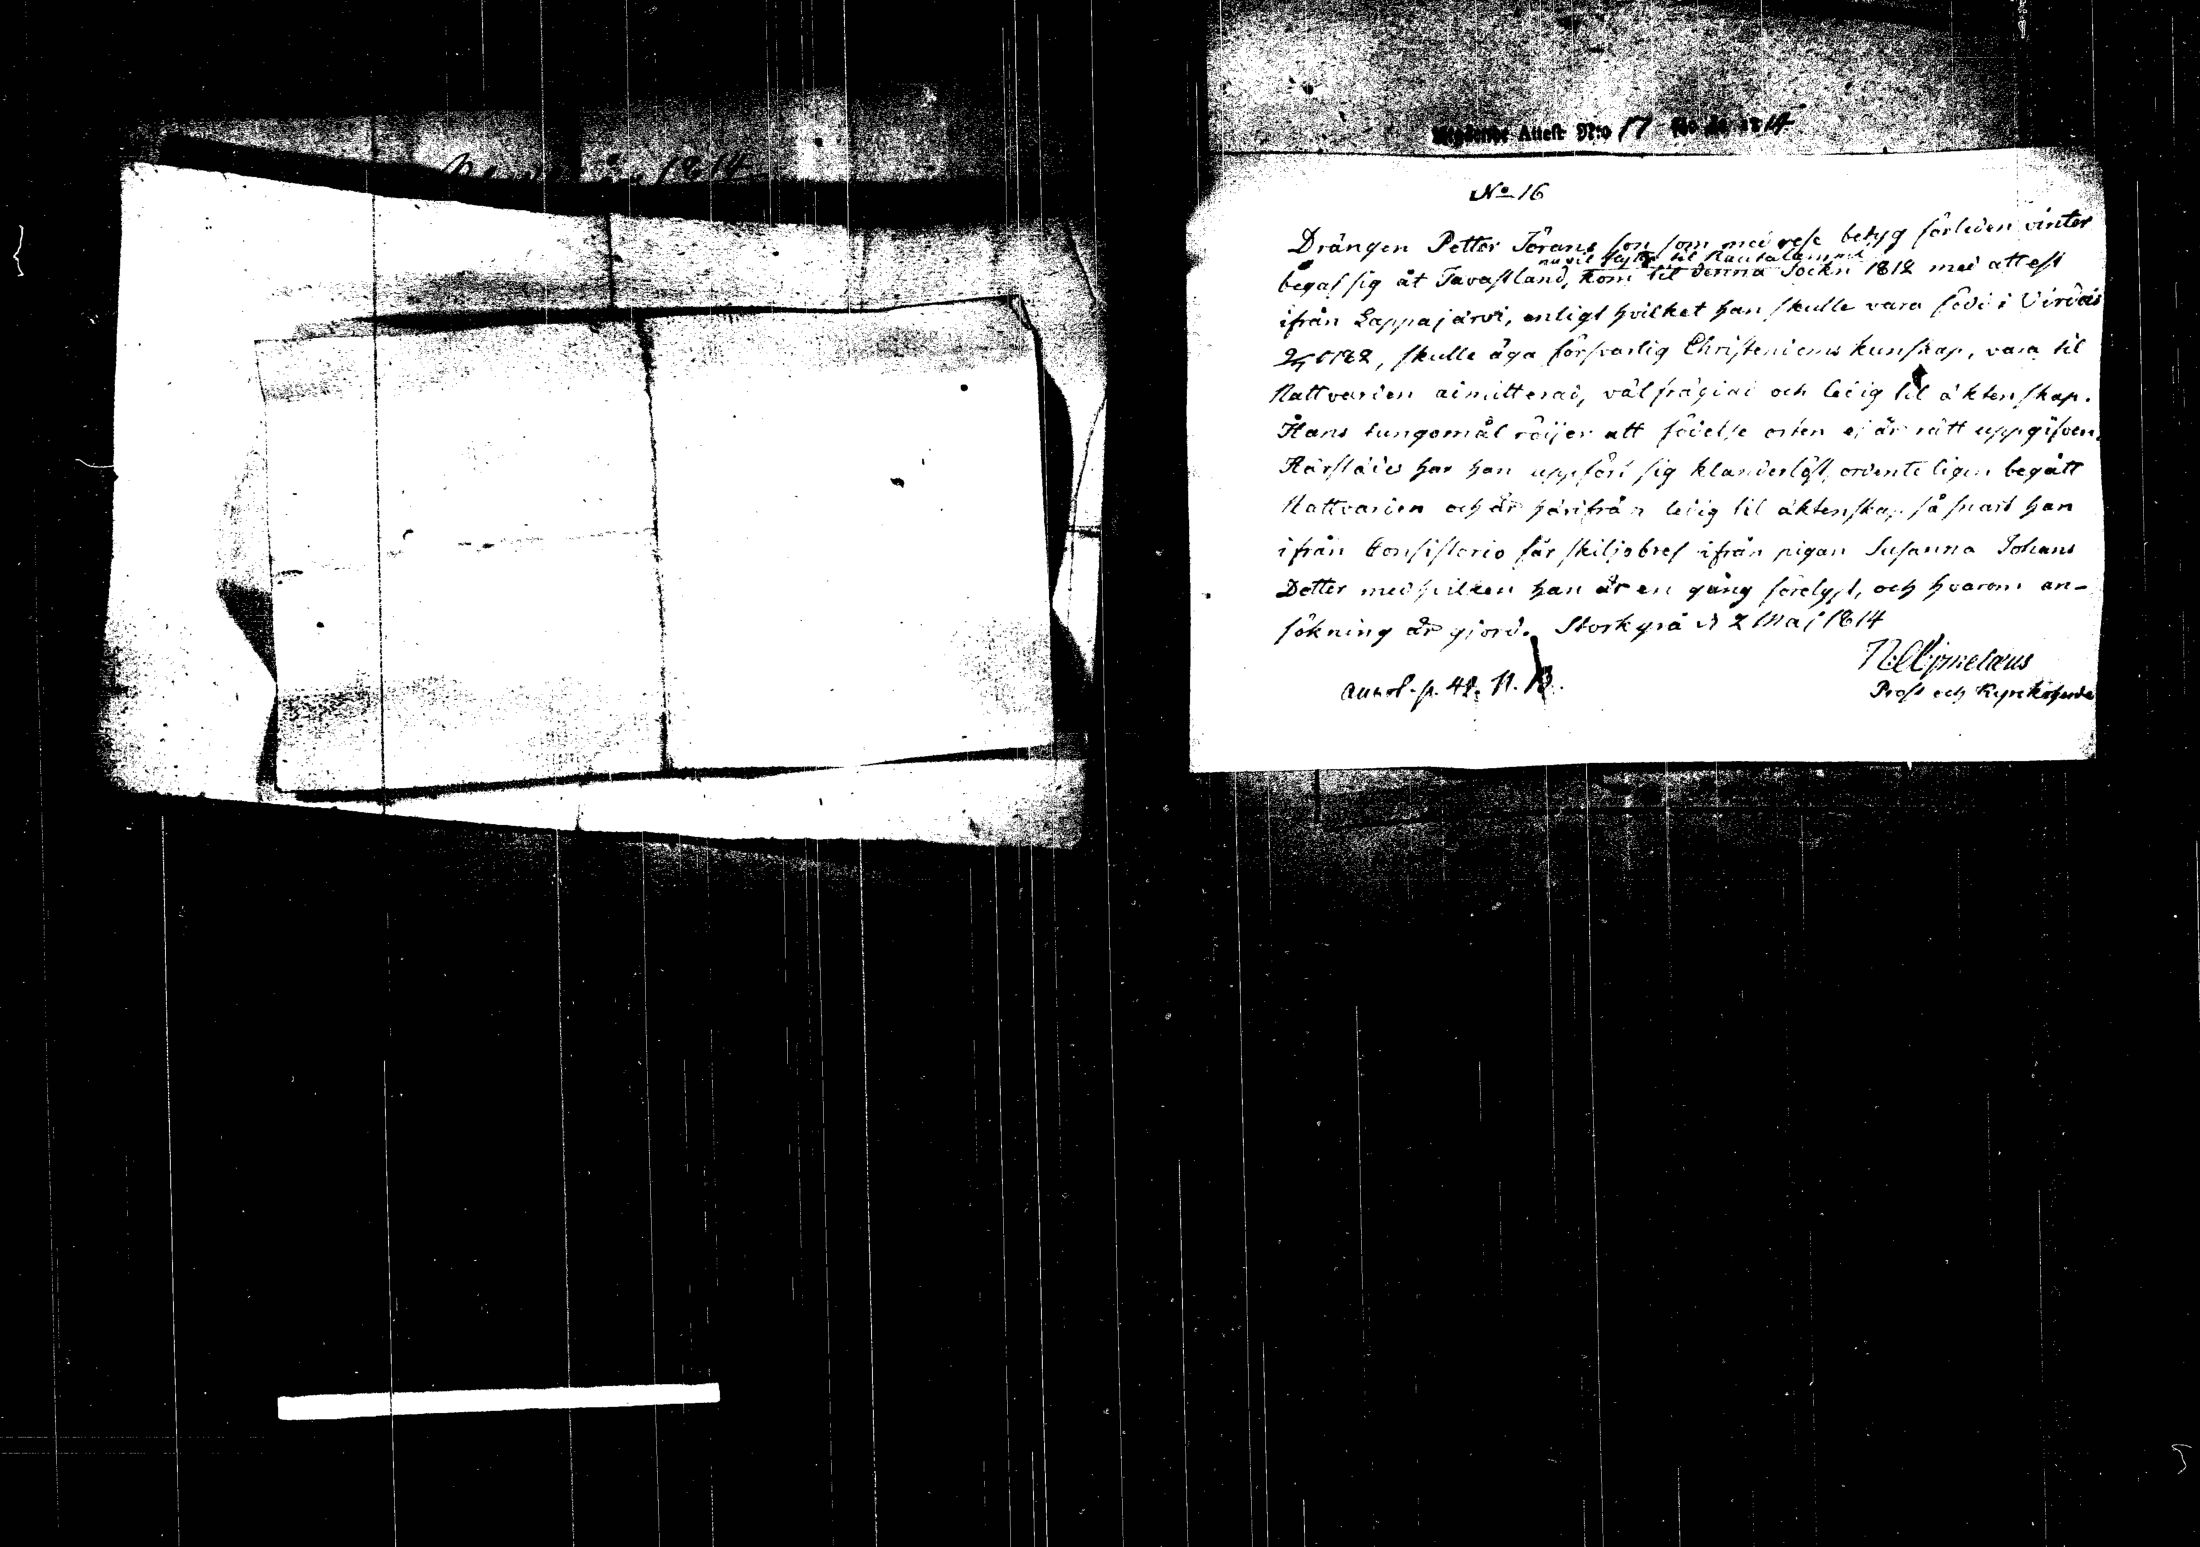 1814
Attest N:o 17 1814
No 16
Drängen Petter Jörans son som med rese betyg förleden vinter
nu vil flytta til Rautalammi
begaf sig åt Tavastland, kom til denna Sockn 1812 med attest
ifrån Lappajärvi, enligt hvilket han skulle vara född i Virdois
skulle äga försvarlig Christendoms kunskap, vara til
Nattvarden admitterad, välfrägdad och ledig til äktenskap.
Hans tungomål röijer att födelse orten ej är rätt uppgifven.
Härstädes har han uppfört sig klanderlöst, ordenteligen begått
Nattvarden och är härifrån ledig til äktenskap så snart han
ifrån Consistorio får skiljobref ifrån pigan Susanna Johans
Dotter med hvilken han är en gång förelyst, och hvarom an-
sökning är gjord. Storkyrå d 2 Maj 1814
Prost och Kyrckoherde
p. 42. N.